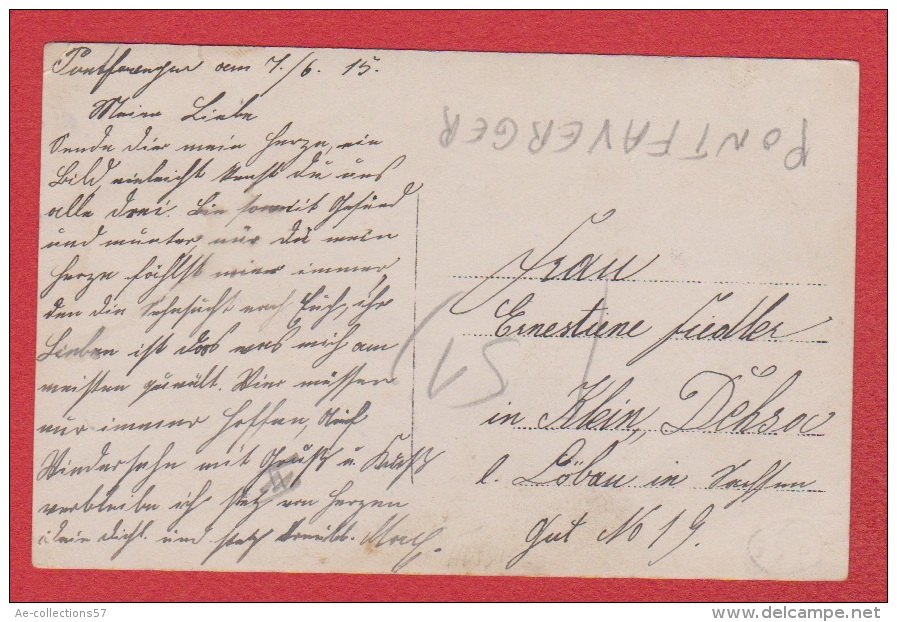 am 7./6. 15.
Meine Liebe
Sende dir mein Herze, ein
Bild, vieleicht kenst du uns
alle drei. Bin soweit Gesund
und munter, nur du mein
Herze fählst mier immer,
den die Sehnsucht nach Euch, ihr
Lieben ist das was mich am
meisten quwält. Wier müssen
nur immer Hoffen, Auf
Wiedersehn mit Gruß u. Kuß
verbleibe ich stez von Herzen
dein dich und stez
PONTFAVERGER
Frau
Ernestiene Fiedler
in Klein, Döhsa
b. Löbau in Sachsen
Gut No 19.
51
Ae-collections57
www.delcampe.net